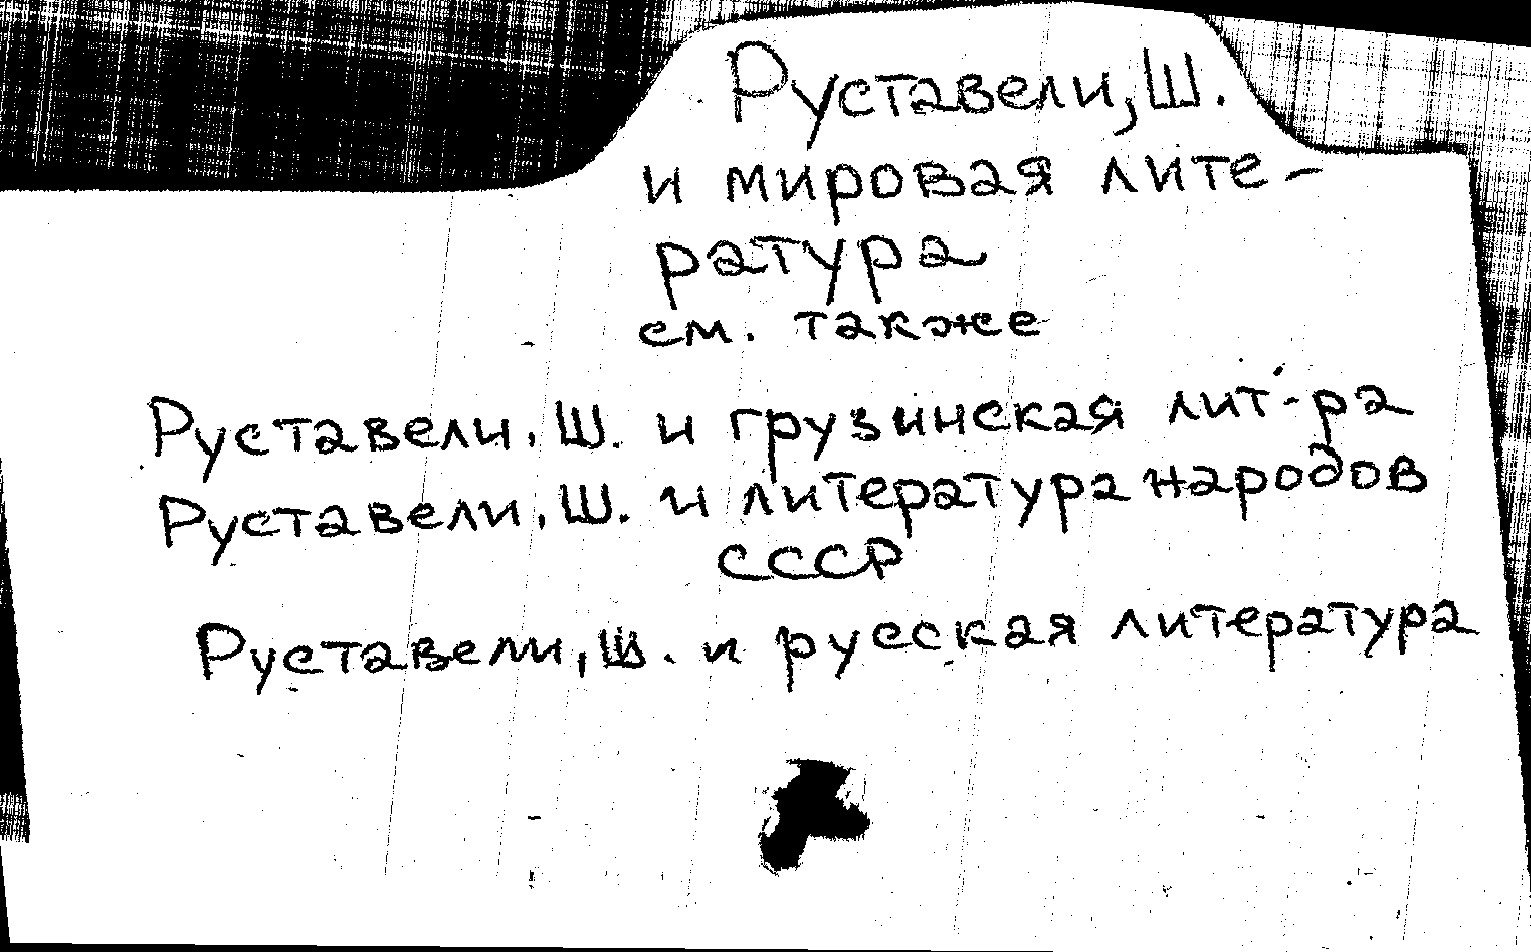 Руставели, Ш.
и мировая лите-
ратура
см. также
Руставели, Ш. и грузинская лит-ра
Руставели, Ш. и литература народов
СССР
Руставели, Ш. и русская литература